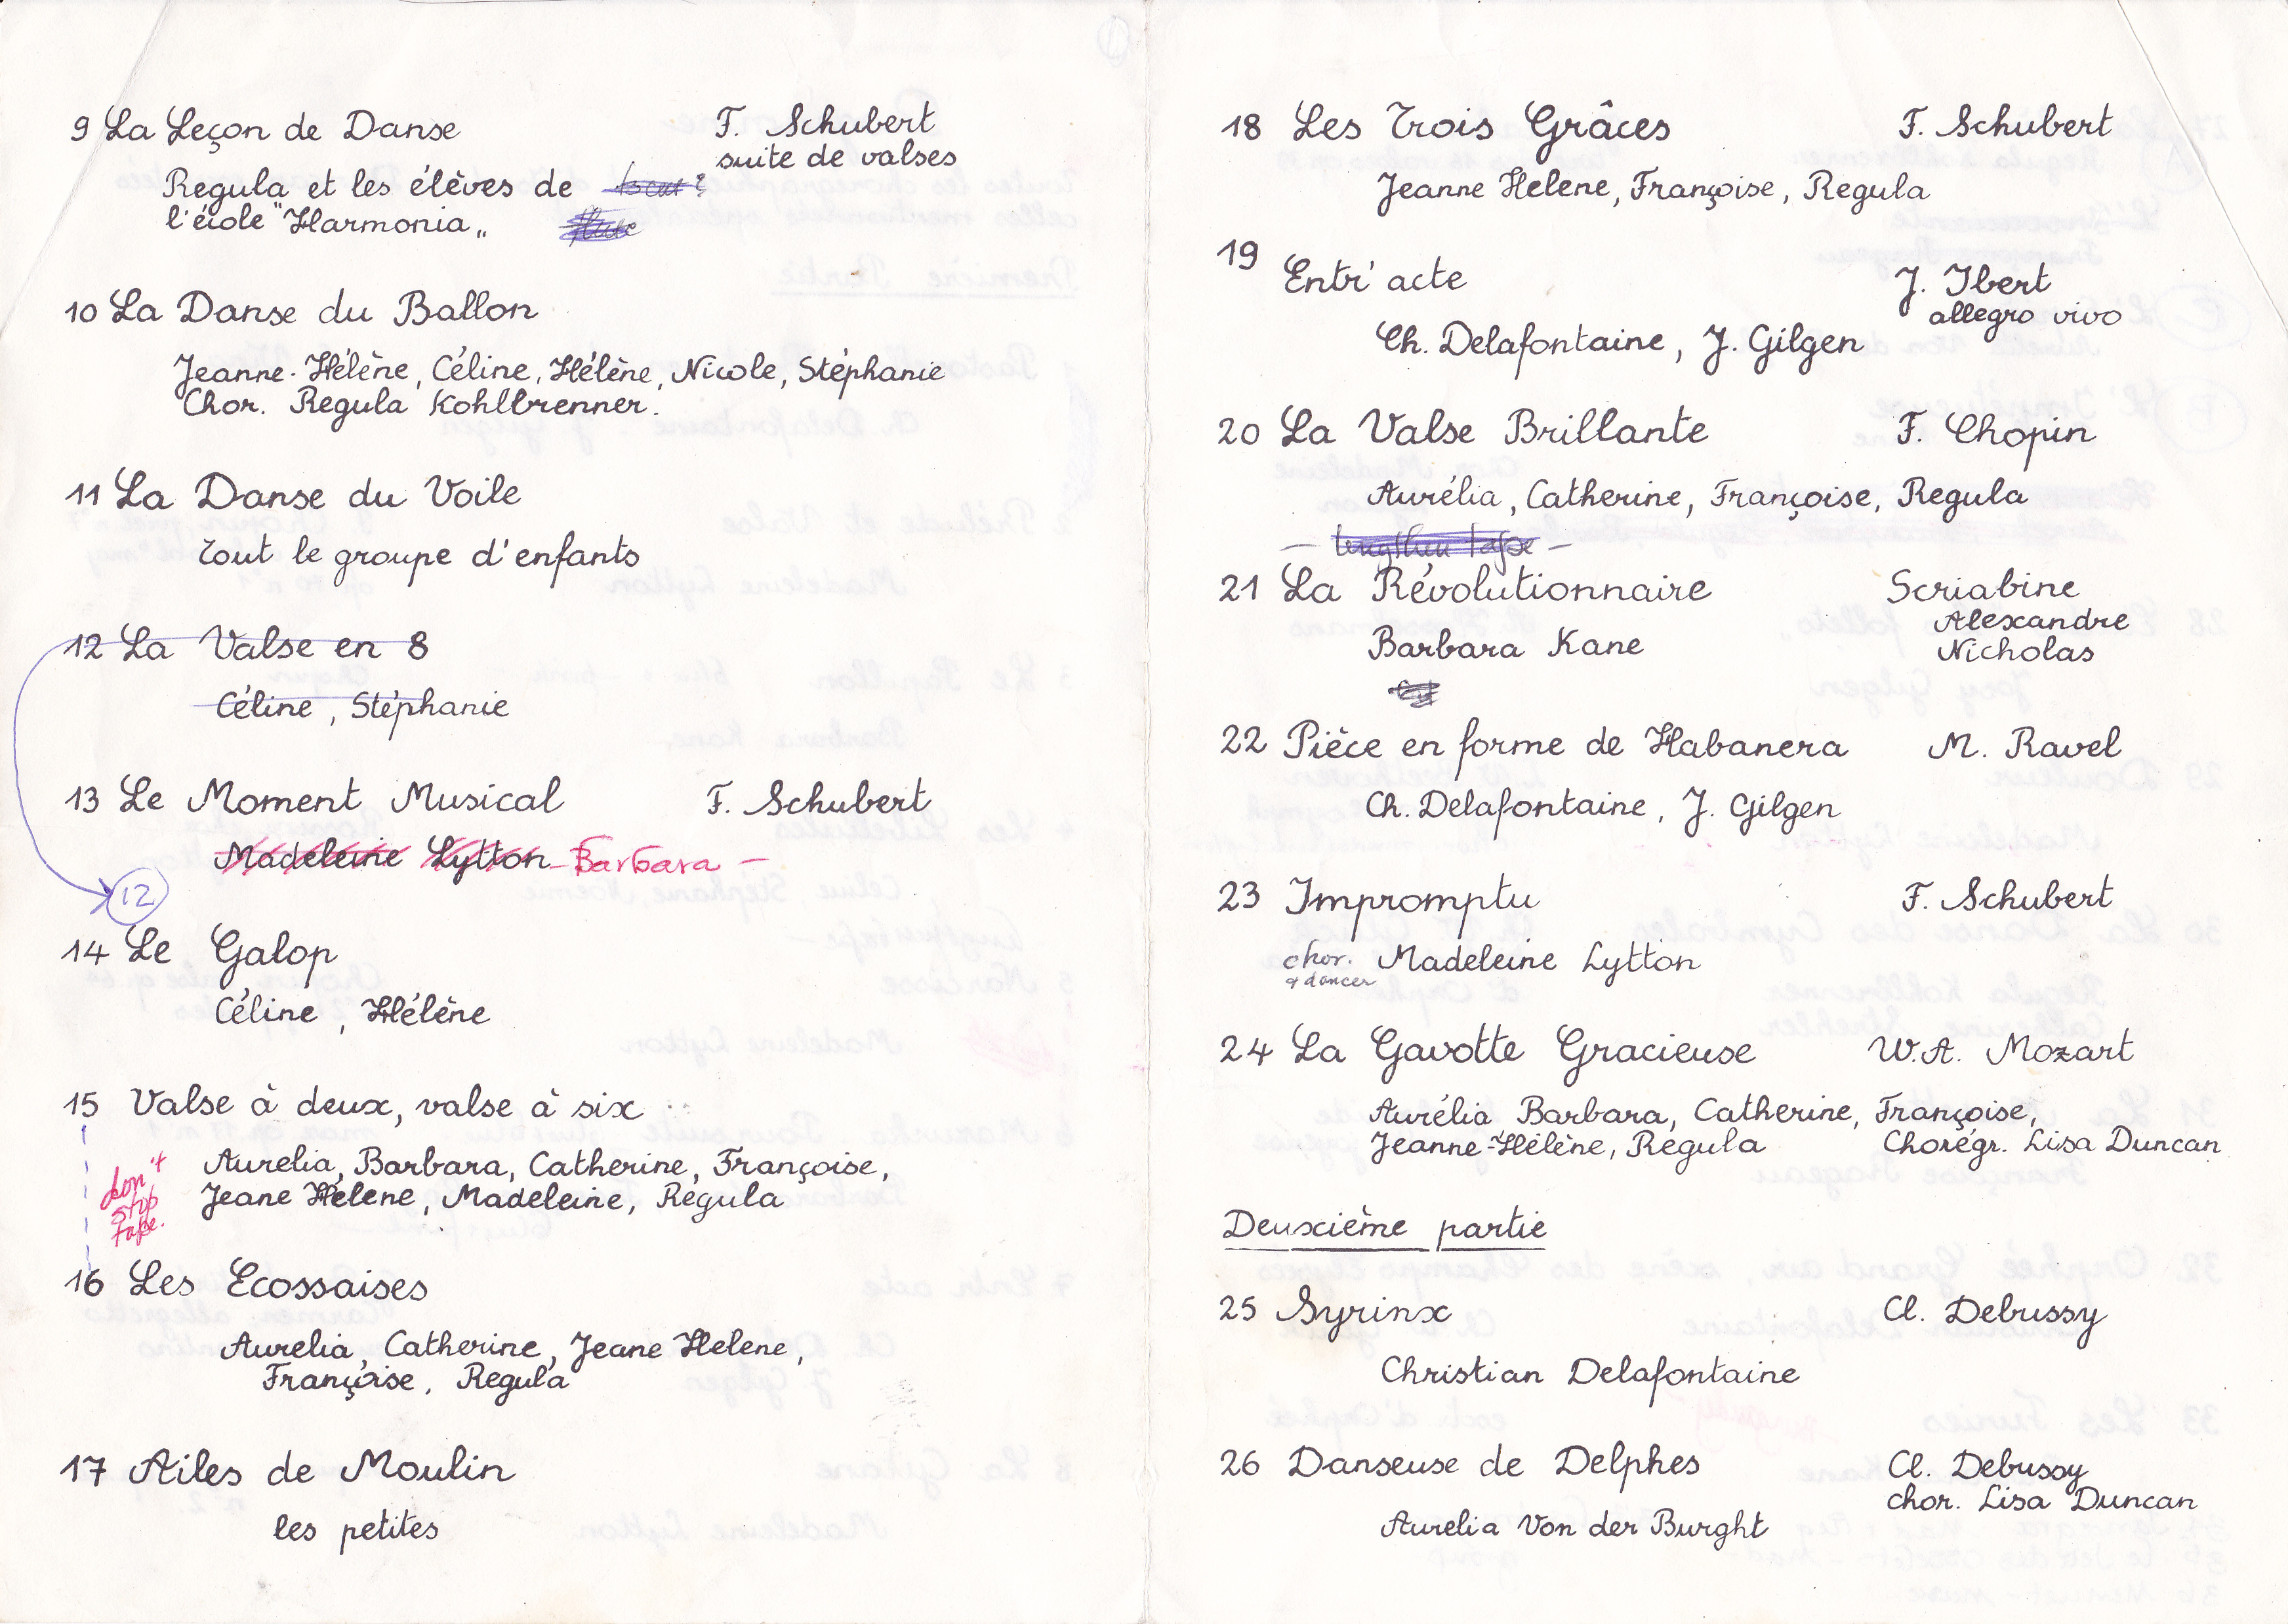 9 La Leçon de Danse F. Schubert
suite de valses
Regula et les élèves de
l'école "Harmonia„
10 La Danse du Ballon
Jeanne-Hélène, Céline, Hélène, Nicole, Stéphanie
Chor. Regula Kohllbrenner.
11 La Danse du Voile
Tout le groupe d'enfants
12 La Valse en 8
Céline, Stéphanie
13 Le Moment Musical F. Schubert
Madeleine Lytton - Barbara -
12
14 Le Galop
Céline, Hélène
15 Valse à deux, valse à six
Aurelia, Barbara, Catherine, Françoise,
Jeane Helene, Madeleine, Regula
don't
stop
tape.
16 Les Ecossaises
Aurelia, Catherine, Jeane Helene,
Françoise, Regula
17 Ailes de Moulin
les petites
18 Les Trois Grâces F. Schubert
Jeanne Helene, Françoise, Regula
19 Entr'acte J. Ibert
allegro vivo
Ch. Delafontaine, J. Gilgen
20 La Valse Brillante F. Chopin
Aurélia, Catherine, Françoise, Regula
- lengthen tape -
21 La Révolutionnaire Scriabine
Alexandre
Barbara Kane Nicholas
22 Pièce en forme de Habanera M. Ravel
Ch. Delafontaine, J. Gilgen
23 Impromptu F. Schubert
chor. Madeleine Lytton
& dancer
24 La Gavotte Gracieuse W.A. Mozart
Aurélia Barbara, Catherine, Françoise,
Jeanne-Hélène, Regula Chorégr. Lisa Duncan
Deuxième partie
25 Syrinx Cl. Debussy
Christian Delafontaine
26 Danseuse de Delphes Cl. Debussy
chor. Lisa Duncan
Aurelia Von der Burght